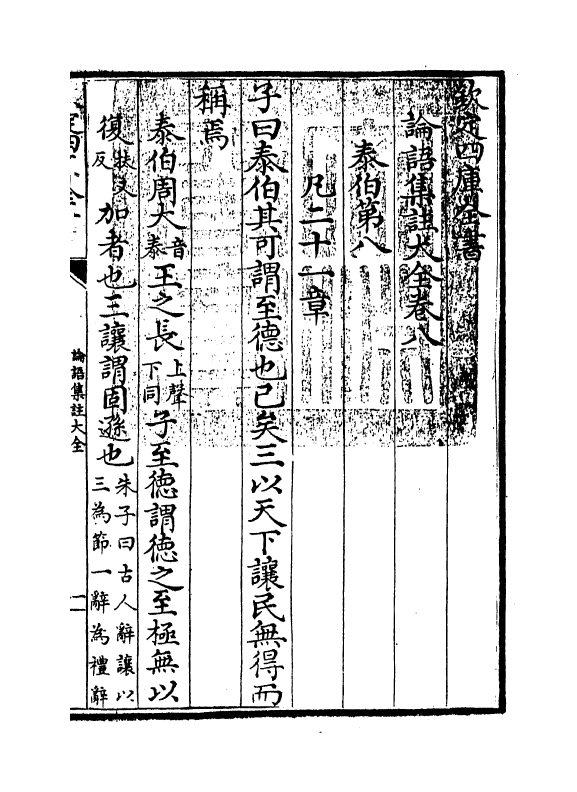 欽定四庫全書
論語集註大全卷八
泰伯第八
凡二十一章
子曰泰伯其可謂至德也已矣三以天下讓民無得而
稱焉
泰伯周大音泰王之長上聲下同子至德謂德之至極無以
復扶又反加者也三讓謂固遜也朱子曰古人辭讓以三為節一辭為禮辭
論語集註大全